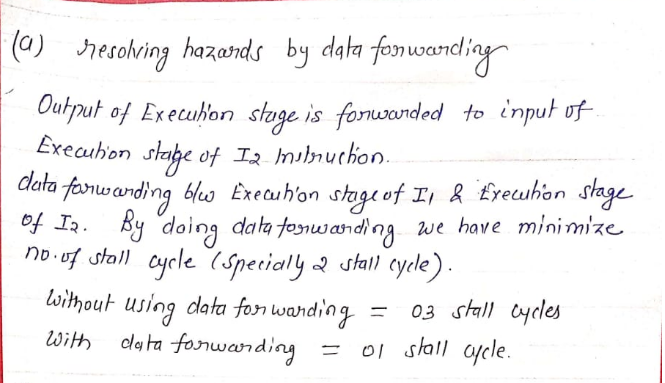 (a) resolving hazards by data forwarding
Output of Execution stage is forwarded to input of
Execution stage of I2 Instruction.
data forwarding b/w Execution stage of I1 & Execution stage
of I2. By doing data forwarding we have minimize
no. of stall cycle (specially 2 stall cycle).
Without using data forwarding = 03 stall cycles
With data forwarding = 01 stall cycle.